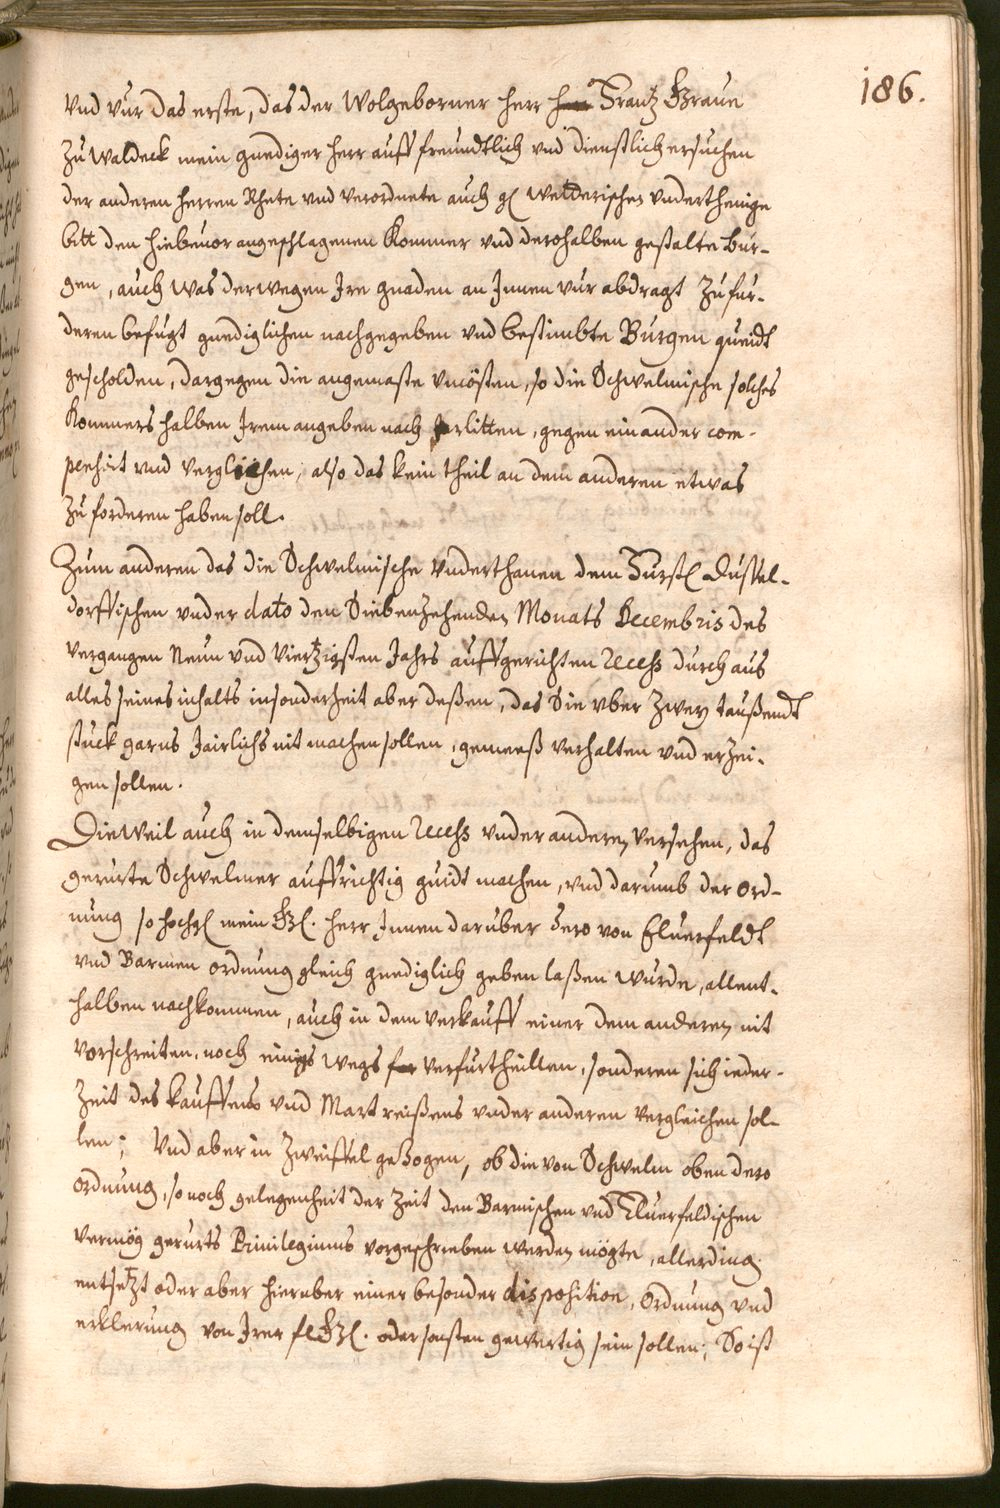 186.
Vnd vur das erste, das der Wolgeborner Herr Frantz Graue
zu Waldeck mein gnediger Herr auff freundtlich vnd dienstlich ersuchen
der anderen Herren Rhete vnd verordnete auch gl Welderisches vnderthenige
bitt den hiebeuor angeschlagenen Kommer vnd derohalben gestalte Bur-
gen, auch was derwegen Ire gnaden an Innen vur abdragt zu fur-
deren befugt gnediglichen nachgegeben vnd bestimbte Burgen queidt
gescholden, dargegen die angemaste vncösten, so die Schwelmische solches
Kommers halben Irem angeben nach erlitten, gegen einander com-
pensirt vnd verglichen, also das kein theil an dem anderen etwas
zu forderen haben soll.
Zum anderen das die Schwelmische vnderthanen dem Furstl Dussel-
dorffischen vnder dato den Siebenzehenden Monats Decembris des
vergangen Neun vnd Viertzigsten Jahrs auffgerichten Recess durch aus
alles seines inhalts insonderheit aber deßen, das Sie vber zwey taußendt
stuck garns Jairlichs nit machen sollen, gemeeß verhalten vnd erzei-
gen sollen.
Dieweil auch in demselbigen Recess vnder anderen versehen, das
gerurte Schwelmer auffrichtig guidt machen, vnd darumb der ord-
nung so hochgl mein Gl. Herr Innen daruber dero von Eluerfeldt
vnd Barmen ordnung gleich gnediglich geben laßen wurde, allent-
halben nachkommen, auch in dem verkauff einer dem anderen nit
vorschreiten, noch einigs wegs verfurtheillen, sonderen sich ieder-
zeit des kauffens vnd Mart reißens vnder anderen vergleichen sol-
len; Vnd aber in Zweiffel gezogen, ob die von Schwelm oben dero
ordnung, so noch gelegenheit der zeit den Barmischen vnd Eluerfeldischen
vermög gerurts Priuilegiums vorgeschrieben werden mögte, allerding
entsetzt oder aber hieruber einer besonder disposition, Ordnung vnd
erklerung von Irer fl Gl. oder sonsten gewertig sein sollen; So ist